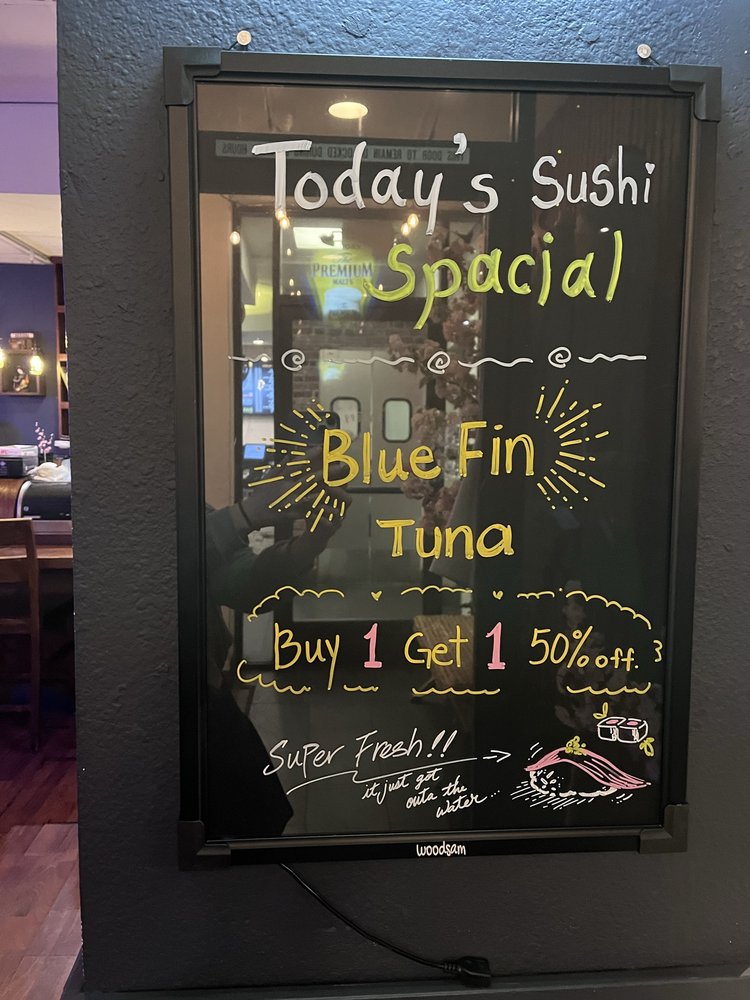 Today's Sushi
Spacial
Blue Fin
Tuna
Buy 1 Get 1 50% off.
Super Fresh!!
it just got
outa the
water...
woodsam
PREMIUM
MALTS